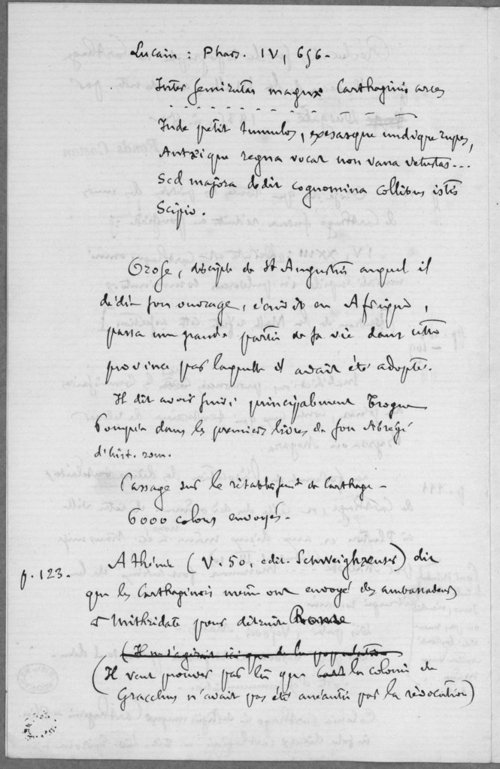 Lucain : Phars. IV, 656.
Inter semirutas magnæ Carthaginis arces
Inde petit tumulos, exesasque undique rupes,
Antæique regna vocat non vana vetustas...
Sed majora dedit cognomina collibus istis
Scipio.
Orose, disciple de St Augustin auquel il
dédie son ouvrage, écrivit en Afrique,
passa une grande partie de sa vie dans cette
province par laquelle il avait été adopté.
Il dit avoir suivi principalement Trogue
Pompée dans les premiers livres de son Abrégé
d'hist. rom.
Passage sur le rétablissmt de Carthage -
6000 colons envoyés.
p. 123. Athénée (V. 50, edit. Schweighæuser) dit
que les Carthaginois même ont envoyé des ambassadeurs
à Mithridate pour détruire Rome
(Il s'agirait ici que de la population
(Il veut prouver par là que la colonie de
Gracchus n'avait pas été anéantie par la révocation)